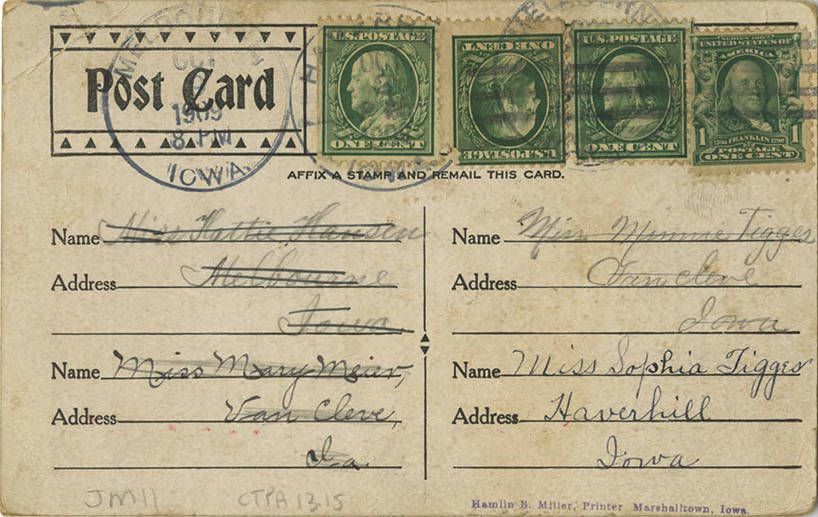 MELBOURNE
OCT
1909
8 PM
IOWA
Post Card
U.S. POSTAGE
ONE CENT
U.S. POSTAGE
ONE CENT
U.S. POSTAGE
ONE CENT
SERIES 1902
UNITED STATES OF
AMERICA
1 FRANKLIN 1
POSTAGE
ONE CENT
MELBOURN
AFFIX A STAMP AND REMAIL THIS CARD.
Name Miss Hattie Hansen
Address Melbourne
Iowa
Name Miss Mary Meier,
Address Van Cleve,
Ia.
Name Miss Minnie Tigges
Address Van Cleve
Iowa
Name Miss Sophia Tigges
Address Haverhill
Iowa
JM11
CTPA 1315
Hamlin B. Miller, Printer Marshalltown, Iowa.